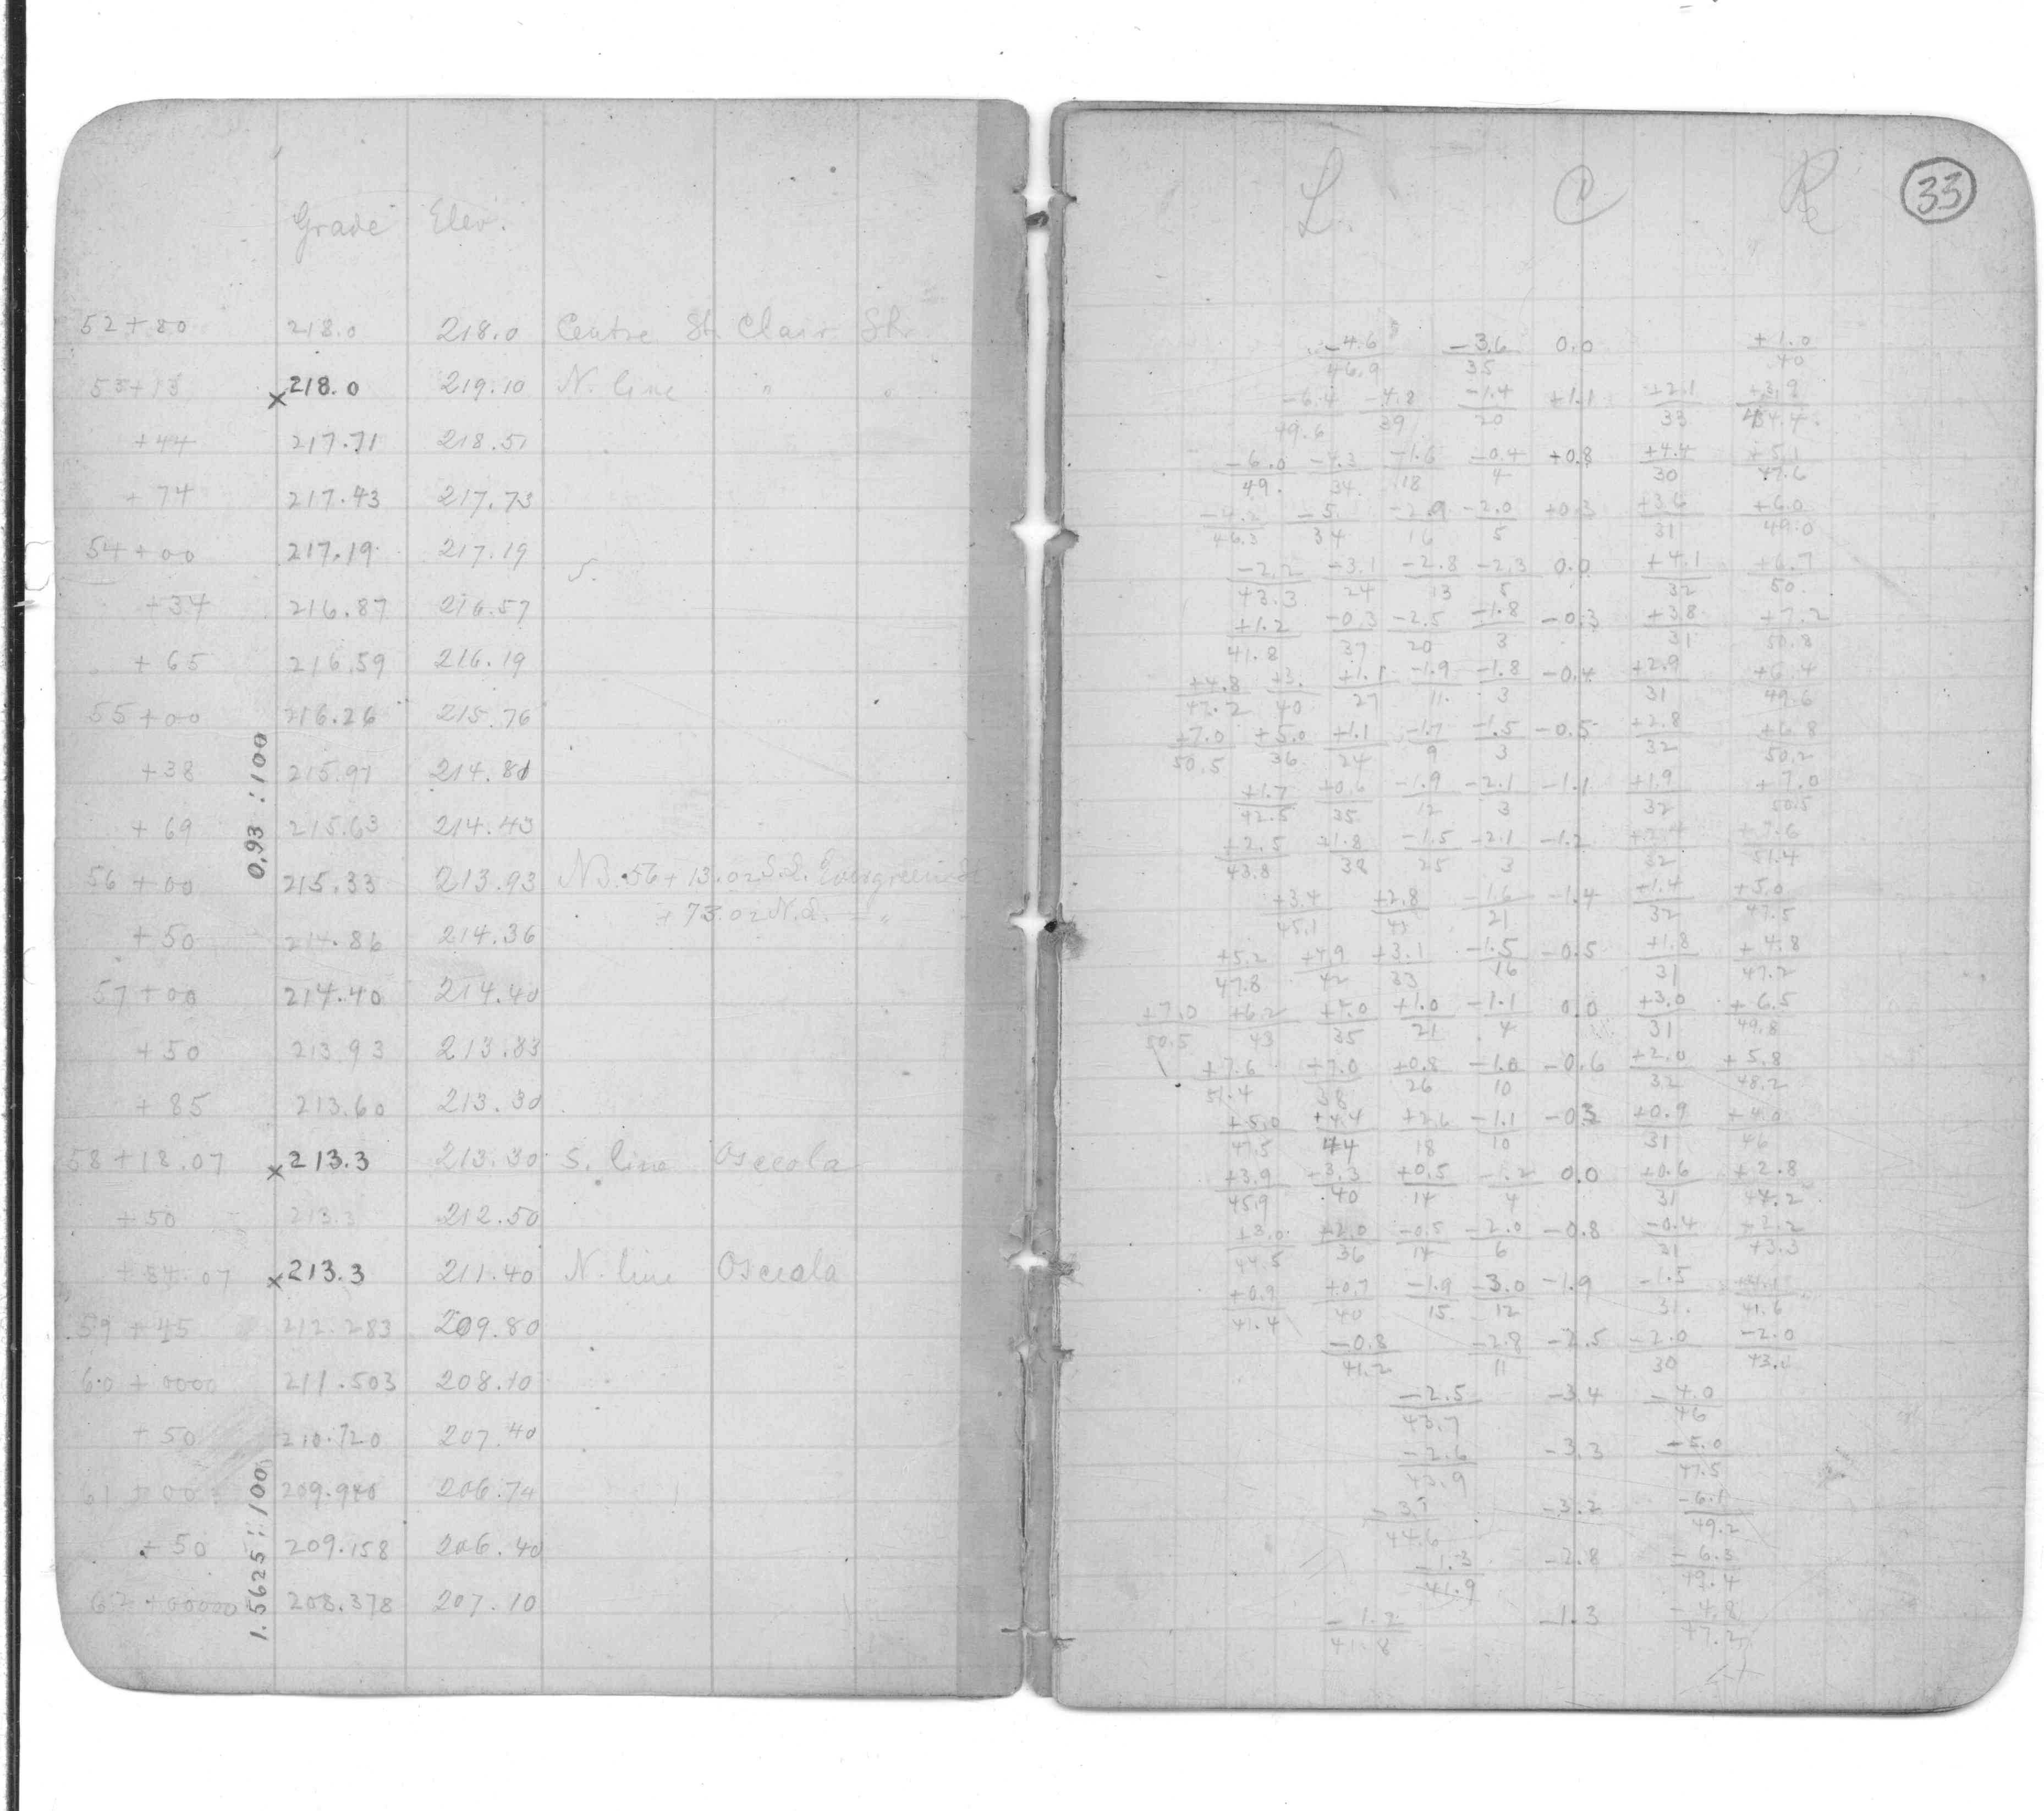 Grade Elev.
52+80 218.0 218.0 Centre St. Clair Str.
53+13 x218.0 219.10 N. line " "
+44 217.71 218.51
+74 217.43 217.73
54+00 217.19 217.19
+34 216.87 216.57
+65 216.59 216.19
55+00 216.26 215.76
+38 215.97 214.81
+69 215.63 214.43
56+00 215.33 213.93 NB. 56+13.02 S.L.
+73.02 N.L. = "
+50 214.86 214.36
57+00 214.40 214.40
+50 213.93 213.83
+85 213.60 213.30
58+18.07 x213.3 213.30 S. line Osceola
+50 213.3 212.50
+84.07 x213.3 211.40 N. line Osceola
59+45 212.283 209.80
60+0000 211.503 208.10
+50 210.720 207.40
61+00 209.940 206.74
+50 209.158 206.40
62+00000 208.378 207.10
0.93 : 100
1.5625 : 100
33
L. C R
-4.6 -3.6 0.0 +1.0
46.9 35 40
-6.4 -4.8 -1.4 +1.1 +2.1 +3.9
49.6 39 20 33 44.4
-6.0 -4.3 -1.6 -0.4 +0.8 +4.4 +5.1
49. 34 18 4 30 47.6
-4.2 -5. -2.9 -2.0 +0.3 +3.6 +6.0
46.3 34 16 5 31 49.0
-2.2 -3.1 -2.8 -2.3 0.0 +4.1 +6.7
43.3 24 13 5 32 50.
+1.2 -0.3 -2.5 -1.8 -0.3 +3.8 +7.2
41.8 37 20 3 31 50.8
+4.8 +3. +1.1 -1.9 -1.8 -0.4 +2.9 +6.4
47.2 40 27 11 3 31 49.6
+7.0 +5.0 +1.1 -1.7 -1.5 -0.5 +2.8 +6.8
50.5 36 24 9 3 32 50.2
+1.7 +0.6 -1.9 -2.1 -1.1 +1.9 +7.0
42.5 35 12 3 32 50.5
+2.5 +1.8 -1.5 -2.1 -1.2 +2.4 +7.6
43.8 38 25 3 32 51.4
+3.4 +2.8 -1.6 -1.4 +1.4 +5.0
45.1 21 32 47.5
+5.2 +4.9 +3.1 -1.5 -0.5 +1.8 +4.8
47.8 42 33 16 31 47.2
+7.0 +6.2 +4.0 +1.0 -1.1 0.0 +3.0 +6.5
50.5 43 35 21 4 31 49.8
+7.6 +7.0 +0.8 -1.0 -0.6 +2.0 +5.8
51.4 38 26 10 32 48.2
+5.0 +4.4 +2.6 -1.1 -0.3 +0.9 +4.0
47.5 44 18 10 31 46
+3.9 +3.3 +0.5 -1.2 0.0 +0.6 +2.8
45.9 40 14 4 31 44.2
+3.0 +2.0 -0.5 -2.0 -0.8 -0.4 +2.2
44.5 36 14 6 21 43.3
+0.9 +0.7 -1.9 -3.0 -1.9 -1.5 +1.1
41.4 40 15 12 31. 41.6
-0.8 -2.8 -2.5 -2.0 -2.0
41.2 11 30 43.0
-2.5 -3.4 -4.0
43.7 46
-2.6 -3.3 -5.0
43.9 47.5
-3.1 -3.2 -6.1
44.6 49.2
-1.3 -2.8 -6.3
41.9 49.4
-1.2 -1.3 -4.8
41.8 47.2